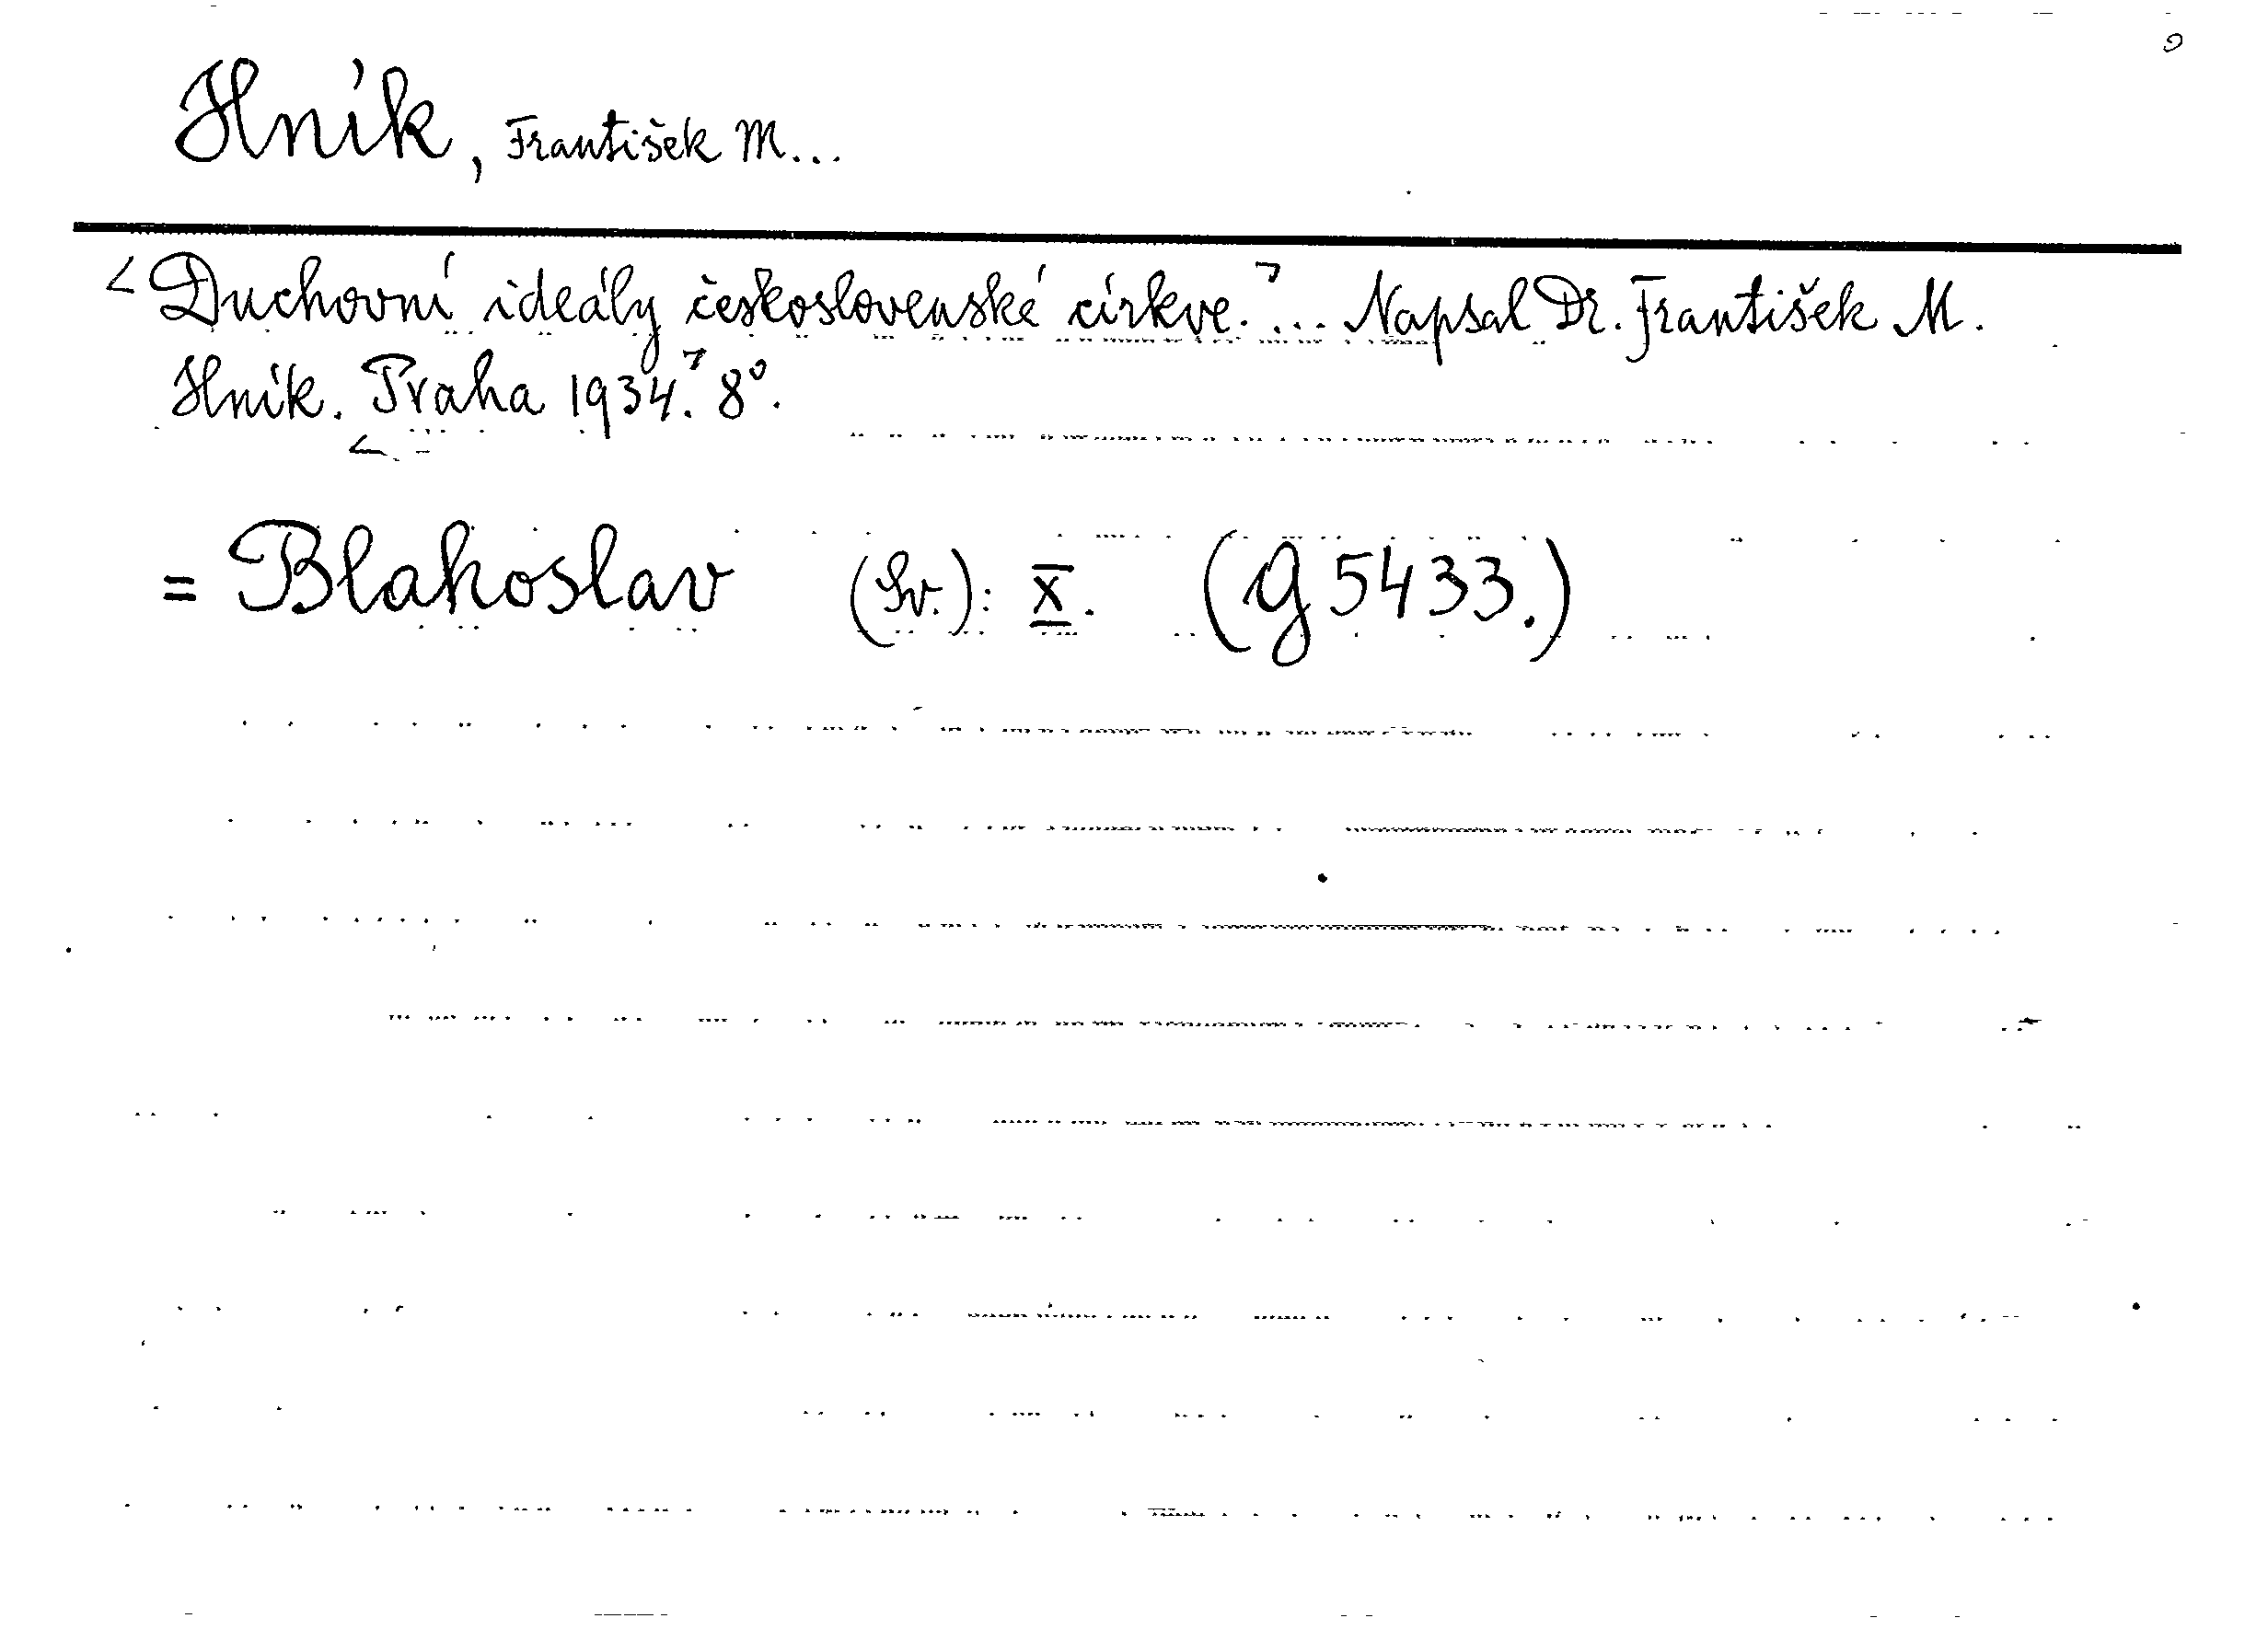 Hník, František M...
<Duchovní ideály československé církve.> ... Napsal Dr. František M.
Hník. <Praha 1934.> 8°.
= Blahoslav (Sv.): X. (G 5433.)